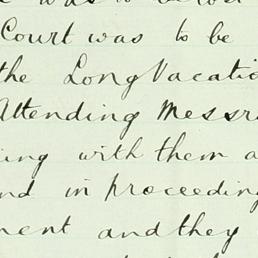 Court was to be
the Long Vacatio
Attending Messr
ing with them a
nd in proceeding
ment and they